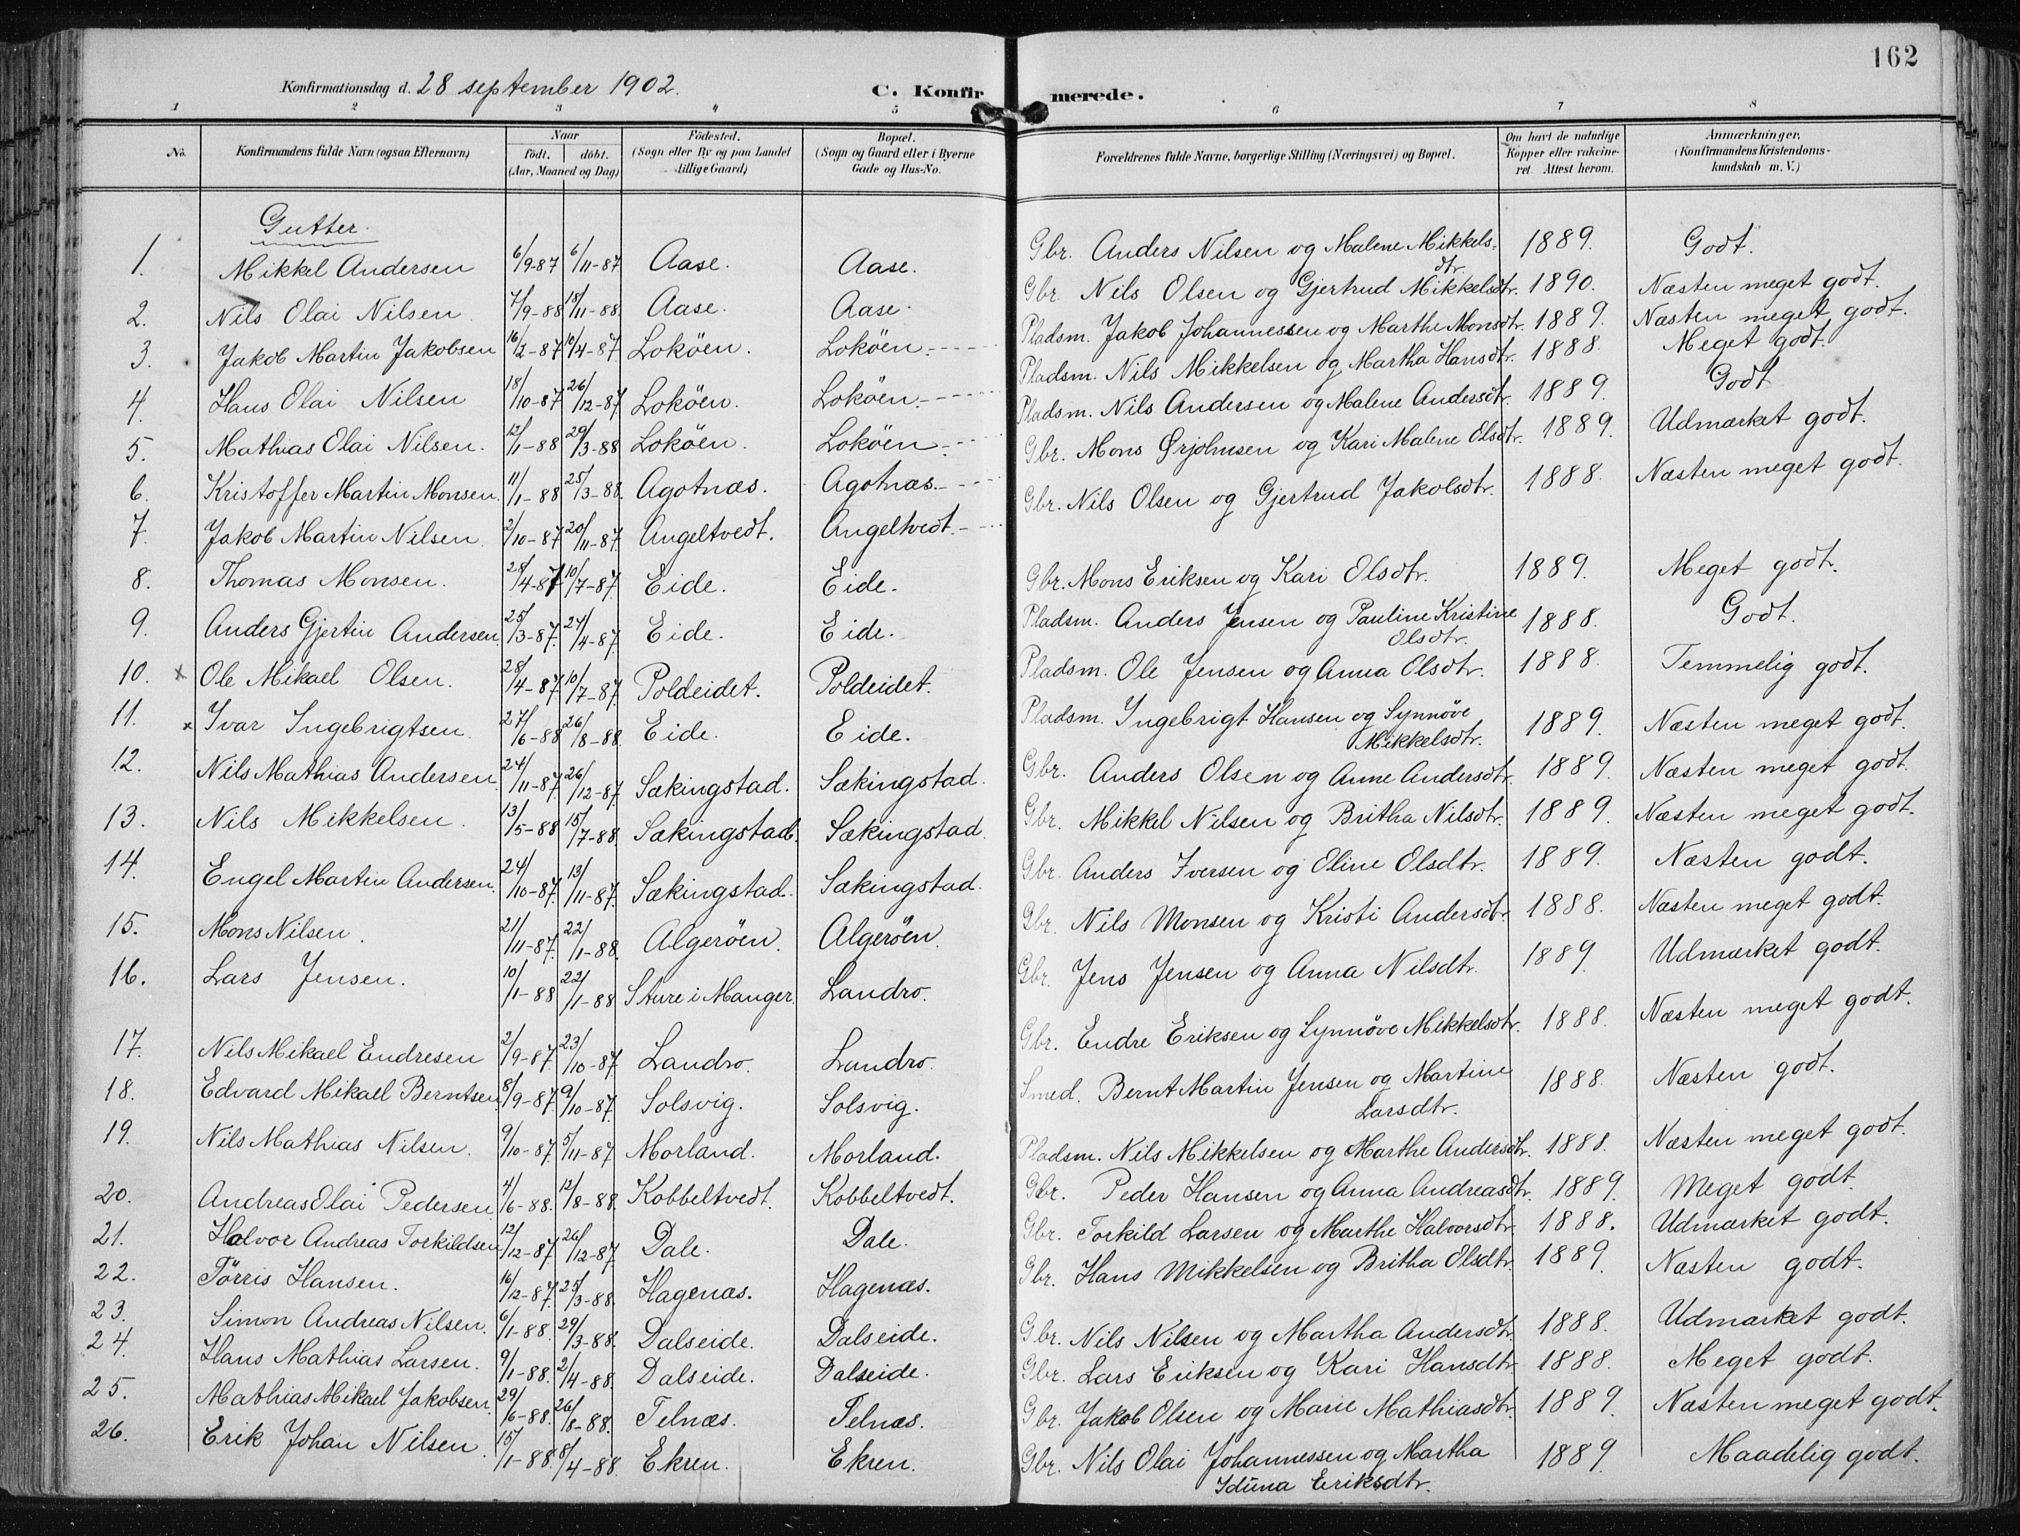 162
Konfirmationsdag d. 28 september 1902. C. Konfirmerede.
1 2 3 " 5 6 7 8
No. Konfirmandens fulde Navn (ogsaa Efternavn) Naar födt. döbt. (Aar, Maaned og Dag) Födested. (Sogn eller By og paa Landet tillige Gaard) Bopæl. (Sogn og Gaard eller i Byerne Gade og Hus-No. Forældrenes fulde Navne, borgerlige Stilling (Næringsvei) og Bopæl. Om havt de naturlige Kopper eller vakcineret. Attest herom. Anmærkninger. (Konfirmandens Kristendomskundskab m. V.)
Gutter.
1. Mikkel Andersen 6/9-87 6/11-87 Aase. Aase. Gbr. Anders Nilsen og Malene Mikkelsdtr. 1889. Godt.
2. Nils Olai Nilsen 7/9-88 18/11-88 Aase. Aase. Gbr. Nils Olsen og Gjertrud Mikkelsdtr. 1890. Næsten meget godt.
3. Jakob Martin Jakobsen 16/2-87 10/4-87 Loköen. Loköen. Pladsm. Jakob Johannessen og Marthe Monsdtr. 1889. Næsten meget godt.
4. Hans Olai Nilsen 18/10-87 26/12-87 Loköen. Loköen. Pladsm. Nils Mikkelsen og Martha Hansdtr. 1888. Meget godt.
5. Mathias Olai Nilsen. 12/1-88 29/3-88 Loköen. Loköen. Pladsm. Nils Andersen og Malene Andersdtr. 1889. Godt
6. Kristoffer Martin Monsen 11/1-88 25/3-88. Agotnæs. Agotnæs. Gbr. Mons Ørjohnsen og Kari Malene Olsdtr. 1889. Udmærket godt.
7. Jakob Martin Nilsen 2/10-87 20/11-87. Angeltvedt. Angeltvedt. Gbr. Nils Olsen og Gjertrud Jakobsdtr. 1888. Næsten meget godt.
8. Thomas Monsen. 28/4-87 10/7-87 Eide. Eide. Gbr. Mons Eriksen og Kari Olsdtr. 1889. Meget godt.
9. Anders Gjertin Andersen 25/3-87. 24/4-87. Eide. Eide. Pladsm. Anders Jensen og Pauline Kristine Olsdtr. 1888. Godt.
10. x Ole Mikael Olsen. 28/4-87 10/7-87. Poldeidet. Poldeidet. Pladsm. Ole Jensen og Anna Olsdtr. 1888. Temmelig godt.
11. x Ivar Ingebrigtsen 27/6-88 26/8-88. Eide. Eide. Pladsm. Ingebrigt Hansen og Synnöve Mikkelsdtr. 1889. Næsten meget godt.
12. Nils Mathias Andersen 24/11-87. 26/12-87 Sækingstad. Sækingstad. Gbr. Anders Olsen og Anne Andersdtr. 1889. Næsten meget godt.
13. Nils Mikkelsen. 13/5-88 15/7-88. Sækingstad. Sækingstad. Gbr. Mikkel Nilsen og Britha Nilsdtr. 1889. Næsten meget godt.
14. Engel Martin Andersen. 24/10-87. 13/11-87. Sækingstad. Sækingstad. Gbr. Anders Iversen og Oline Olsdtr. 1889. Næsten godt.
15. Mons Nilsen. 21/11-87. 22/1-88. Algeröen. Algeröen. Gbr. Nils Monsen og Kristi Andersdtr. 1888. Næsten meget godt.
16. Lars Jensen. 10/1-88 22/1-88 Sture i Manger. Landro. Gbr. Jens Jensen og Anna Nilsdtr. 1889 Udmærket godt.
17. Nils Mikael Endresen 2/9-87. 23/10-87 Landro. Landro. Gbr. Endre Eriksen og Synnöve Mikkelsdtr. 1888. Næsten meget godt.
18. Edvard Mikael Berntsen 8/9-87 9/10-87. Solsvig. Solsvig. Smed. Bernt Martin Jensen og Martine Larsdtr. 1888. Næsten godt.
19. Nils Mathias Nilsen. 9/10-87. 5/11-87 Morland. Morland. Pladsm. Nils Mikkelsen og Marthe Andersdtr. 1888. Næsten meget godt.
20. Andreas Olai Pedersen 4/6-88. 12/8-88. Kobbeltvedt. Kobbeltvedt. Gbr. Peder Hansen og Anna Andreasdtr. 1889. Meget godt.
21. Halvor Andreas Torkildsen 12/12-87 26/12-87. Dale. Dale. Gbr. Torkild Larsen og Marthe Halvorsdtr. 1888. Udmærket godt.
22. Törris Hansen. 16/12-87. 25/3-88. Hagenæs. Hagenæs. Gbr. Hans Mikkelsen og Britha Olsdtr. 1889. Næsten godt.
23. Simon Andreas Nilsen. 6/1-88. 29/3-88. Dalseide. Dalseide. Gbr. Nils Nilsen og Martha Andersdtr. 1888. Udmærket godt.
24. Hans Mathias Larsen. 9/1-88. 2/4-88. Dalseide. Dalseide. Gbr. Lars Eriksen og Kari Hansdtr. 1888. Meget godt.
25. Mathias Mikael Jakobsen. 29/6-88. 26/8-88. Telnæs. Telnæs. Gbr. Jakob Olsen og Marie Mathiasdtr. 1889. Næsten meget godt.
26. Erik Johan Nilsen. 15/1-88. 8/4-88. Ekren. Ekren. Gbr. Nils Olai Johannessen og Martha Iduna Eriksdtr. 1889. Maadelig godt.